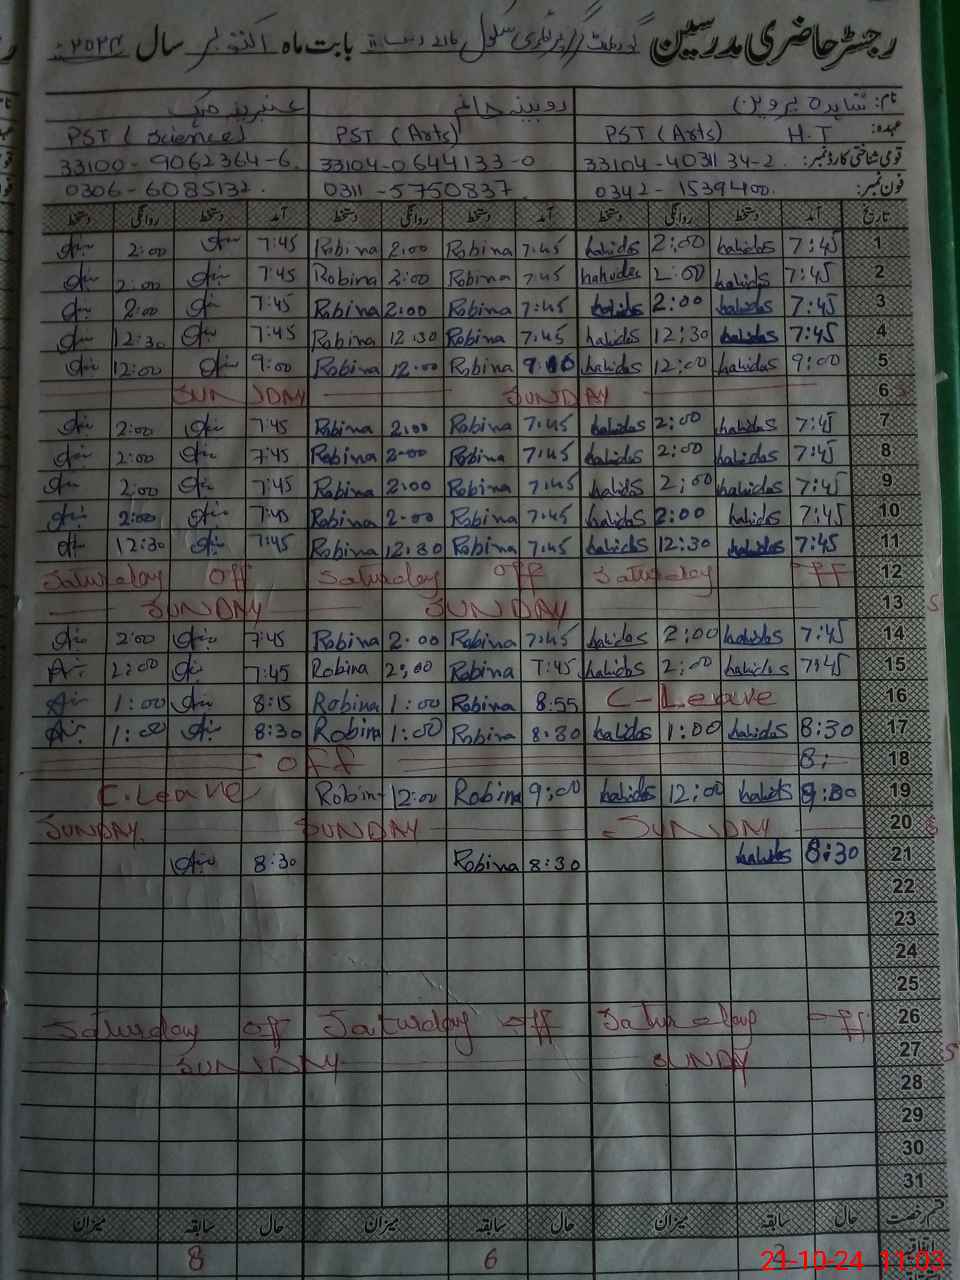 رجسٹر حاضری مدرسین گورنمنٹ گرلز پرائمری سکول 216 بابت ماہ اکتوبر سال ۲۰۲۴
نام: شاہدہ پروین روبینہ خانم عنبرینہ
عہدہ: H.T PST (Arts) PST (Arts) PST (Science)
قومی شناختی کارڈ نمبر: 33104-4031134-2 33104-0644133-0 33100-9062364-6
فون نمبر: 0342-1539400 0311-5750837 0306-6085132
تاریخ آمد دستخط روانگی دستخط آمد دستخط روانگی دستخط آمد دستخط روانگی دستخط
1 7:45 hahidas 2:00 hahidas 7:45 Robina 2:00 Robina 7:45 2:00
2 7:45 hahidas 2:00 hahidas 7:45 Robina 2:00 Robina 7:45 2:00
3 7:45 hahidas 2:00 hahidas 7:45 Robina 2:00 Robina 7:45 2:00
4 7:45 hahidas 12:30 hahidas 7:45 Robina 12:30 Robina 7:45 12:30
5 9:00 hahidas 12:00 hahidas 9:00 Robina 12:00 Robina 9:00 12:00
6 SUNDAY SUNDAY
7 7:45 hahidas 2:00 hahidas 7:45 Robina 2:00 Robina 7:45 2:00
8 7:45 hahidas 2:00 hahidas 7:45 Robina 2:00 Robina 7:45 2:00
9 7:45 hahidas 2:00 hahidas 7:45 Robina 2:00 Robina 7:45 2:00
10 7:45 hahidas 2:00 hahidas 7:45 Robina 2:00 Robina 7:45 2:00
11 7:45 hahidas 12:30 hahidas 7:45 Robina 12:30 Robina 7:45 12:30
12 Saturday off Saturday off Saturday off
13 SUNDAY SUNDAY
14 7:45 hahidas 2:00 hahidas 7:45 Robina 2:00 Robina 7:45 2:00
15 7:45 hahidas 2:00 hahidas 7:45 Robina 2:00 Robina 7:45 2:00
16 C-Leave 8:55 Robina 1:00 Robina 8:15 1:00
17 8:30 hahidas 1:00 hahidas 8:30 Robina 1:00 Robina 8:30 1:00
18 8: off
19 9:00 hahidas 12:00 hahidas 9:00 Robina 12:00 Robin C.Leave
20 SUNDAY SUNDAY SUNDAY
21 8:30 hahidas 8:30 Robina 8:30
22
23
24
25
26 Saturday off Saturday off Saturday off
27 SUNDAY SUNDAY
28
29
30
31
قسم رخصت حال سابقہ میزان حال سابقہ میزان حال سابقہ میزان
اتفاقیہ 6 8
21-10-24 11:03